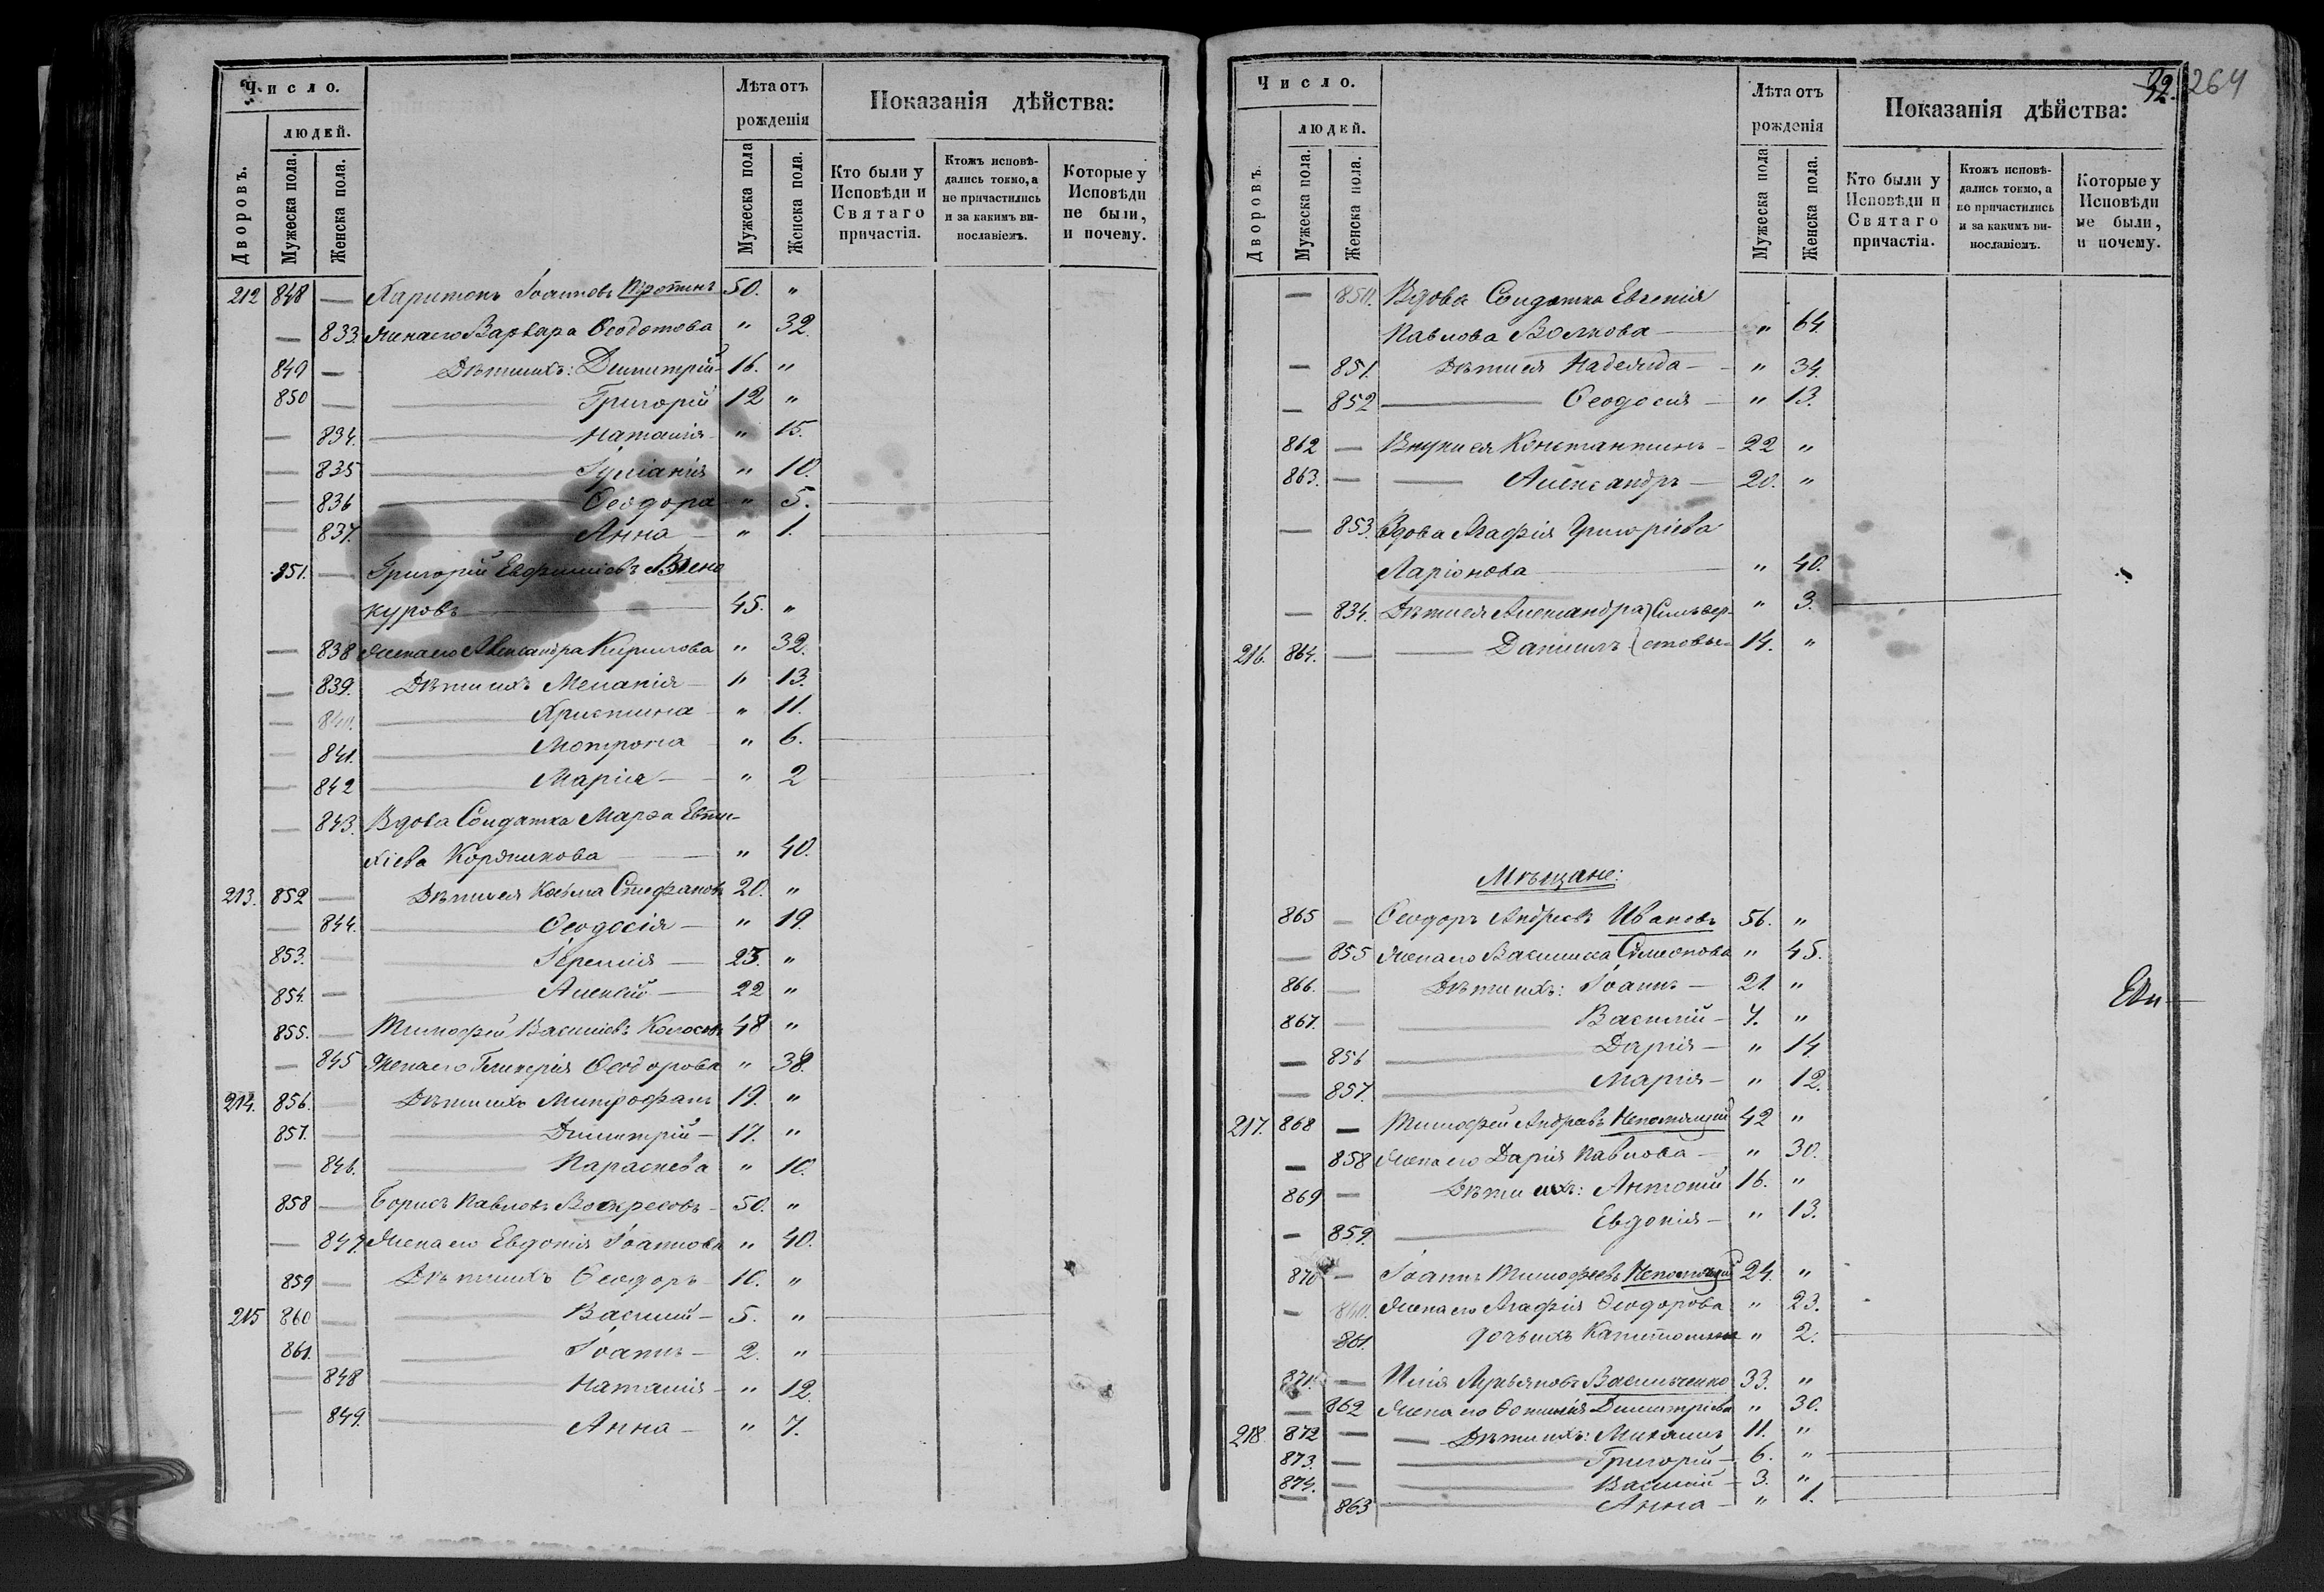 Число.
людей.
Дворовъ.
Мужеска пола.
Женска пола.
Лѣта отъ
рожденія
Мужеска пола
Женска пола.
Показанія дѣйства:
Кто были у
Исповѣди и
Святаго
причастія.
Ктожъ исповѣ-
дались токмо, а
не причастились
и за какимъ ви-
нословіемъ.
Которые у
Исповѣди
не были,
и почему.
212 848 — Харитонъ Іоанновъ 50. "
— 833. Жена его Варвара Ѳеодотова " 32.
849 — Дѣти ихъ: Димитрій 16. "
850 — Григорій 12 "
— 834. Наталія " 15.
— 835 Іуліанія " 10.
— 836 Ѳеодора " 5.
— 837. Анна " 1.
851. — Григорій Евфиміевъ
куровъ 45. "
— 838 Жена его Александра Кирилова " 32.
— 839. Дѣти ихъ Меланія " 13.
— 840. Христина " 11.
— 841. Мотрона " 6.
— 842 Марія " 2
— 843. Вдова Солдатка Марѳа Евти-
хіева Корякинова " 40.
213. 852 — Дѣти ея Козьма Стефановъ 20. "
— 844. Ѳеодосія " 19.
853. — Іеремія 23. "
854. — Алексій 22 "
855. — Тимофей Василіевъ Колосовъ 48 "
— 845 Жена его Гликерія Ѳеодорова " 38.
214. 856. — Дѣти ихъ Митрофанъ 19. "
857. — Димитрій 17. "
— 846. Параскева " 10.
858 — Борисъ Павловъ 50. "
— 847. Жена его Евдокія Іоаннова " 40.
859 — Дѣти ихъ Ѳеодоръ 10. "
215 860 — Василій 5. "
861. — Іоаннъ 2. "
— 848 Наталія " 12.
— 849. Анна " 7.
92. 264
Число.
людей.
Дворовъ.
Мужеска пола.
Женска пола.
Лѣта отъ
рожденія
Мужеска пола
Женска пола.
Показанія дѣйства:
Кто были у
Исповѣди и
Святаго
причастія.
Ктожъ исповѣ-
дались токмо, а
не причастились
и за какимъ ви-
нословіемъ.
Которые у
Исповѣди
не были,
и почему.
— 850. Вдова Солдатка Евгенія
Павлова Волкова " 64.
— 851. Дѣти ея Надежда " 34.
— 852 Ѳеодосія " 13.
862 — Внуки ея Константинъ 22 "
863. — Александръ 20. "
— 853. Вдова Агафія Григоріева
Ларіонова " 40.
— 834. Дѣти ея Александра } Сильвер- " 3.
216. 864. — Даніилъ { стовы 14. "
Мѣщане:
865 — Ѳеодоръ Андреевъ Ивановъ 56. "
— 855 Жена его Василисса Симеонова " 45.
866. — Дѣти ихъ: Іоаннъ 21. "
867. — Василій 7. "
— 856 Дарія " 14
— 857. Марія " 12.
217. 868 — Тимофей Андреевъ Непомнящій 42 "
— 858 Жена его Дарія Павлова " 30.
869 — Дѣти ихъ: Антоній 16. "
— 859. Евдокія " 13.
870 — Іоаннъ Тимофеевъ Непомнящій 24. "
— 860. Жена его Агафія Ѳеодорова " 23.
861. Дочь ихъ Капитолина " 2.
871. — Илія Лукьяновъ Васильченко 33. "
— 862 Жена его Димитріева " 30.
218. 872 — Дѣти ихъ: Михаилъ 11. "
873. — Григорій 6. "
874. — Василій 3. "
— 863 Анна " 1.